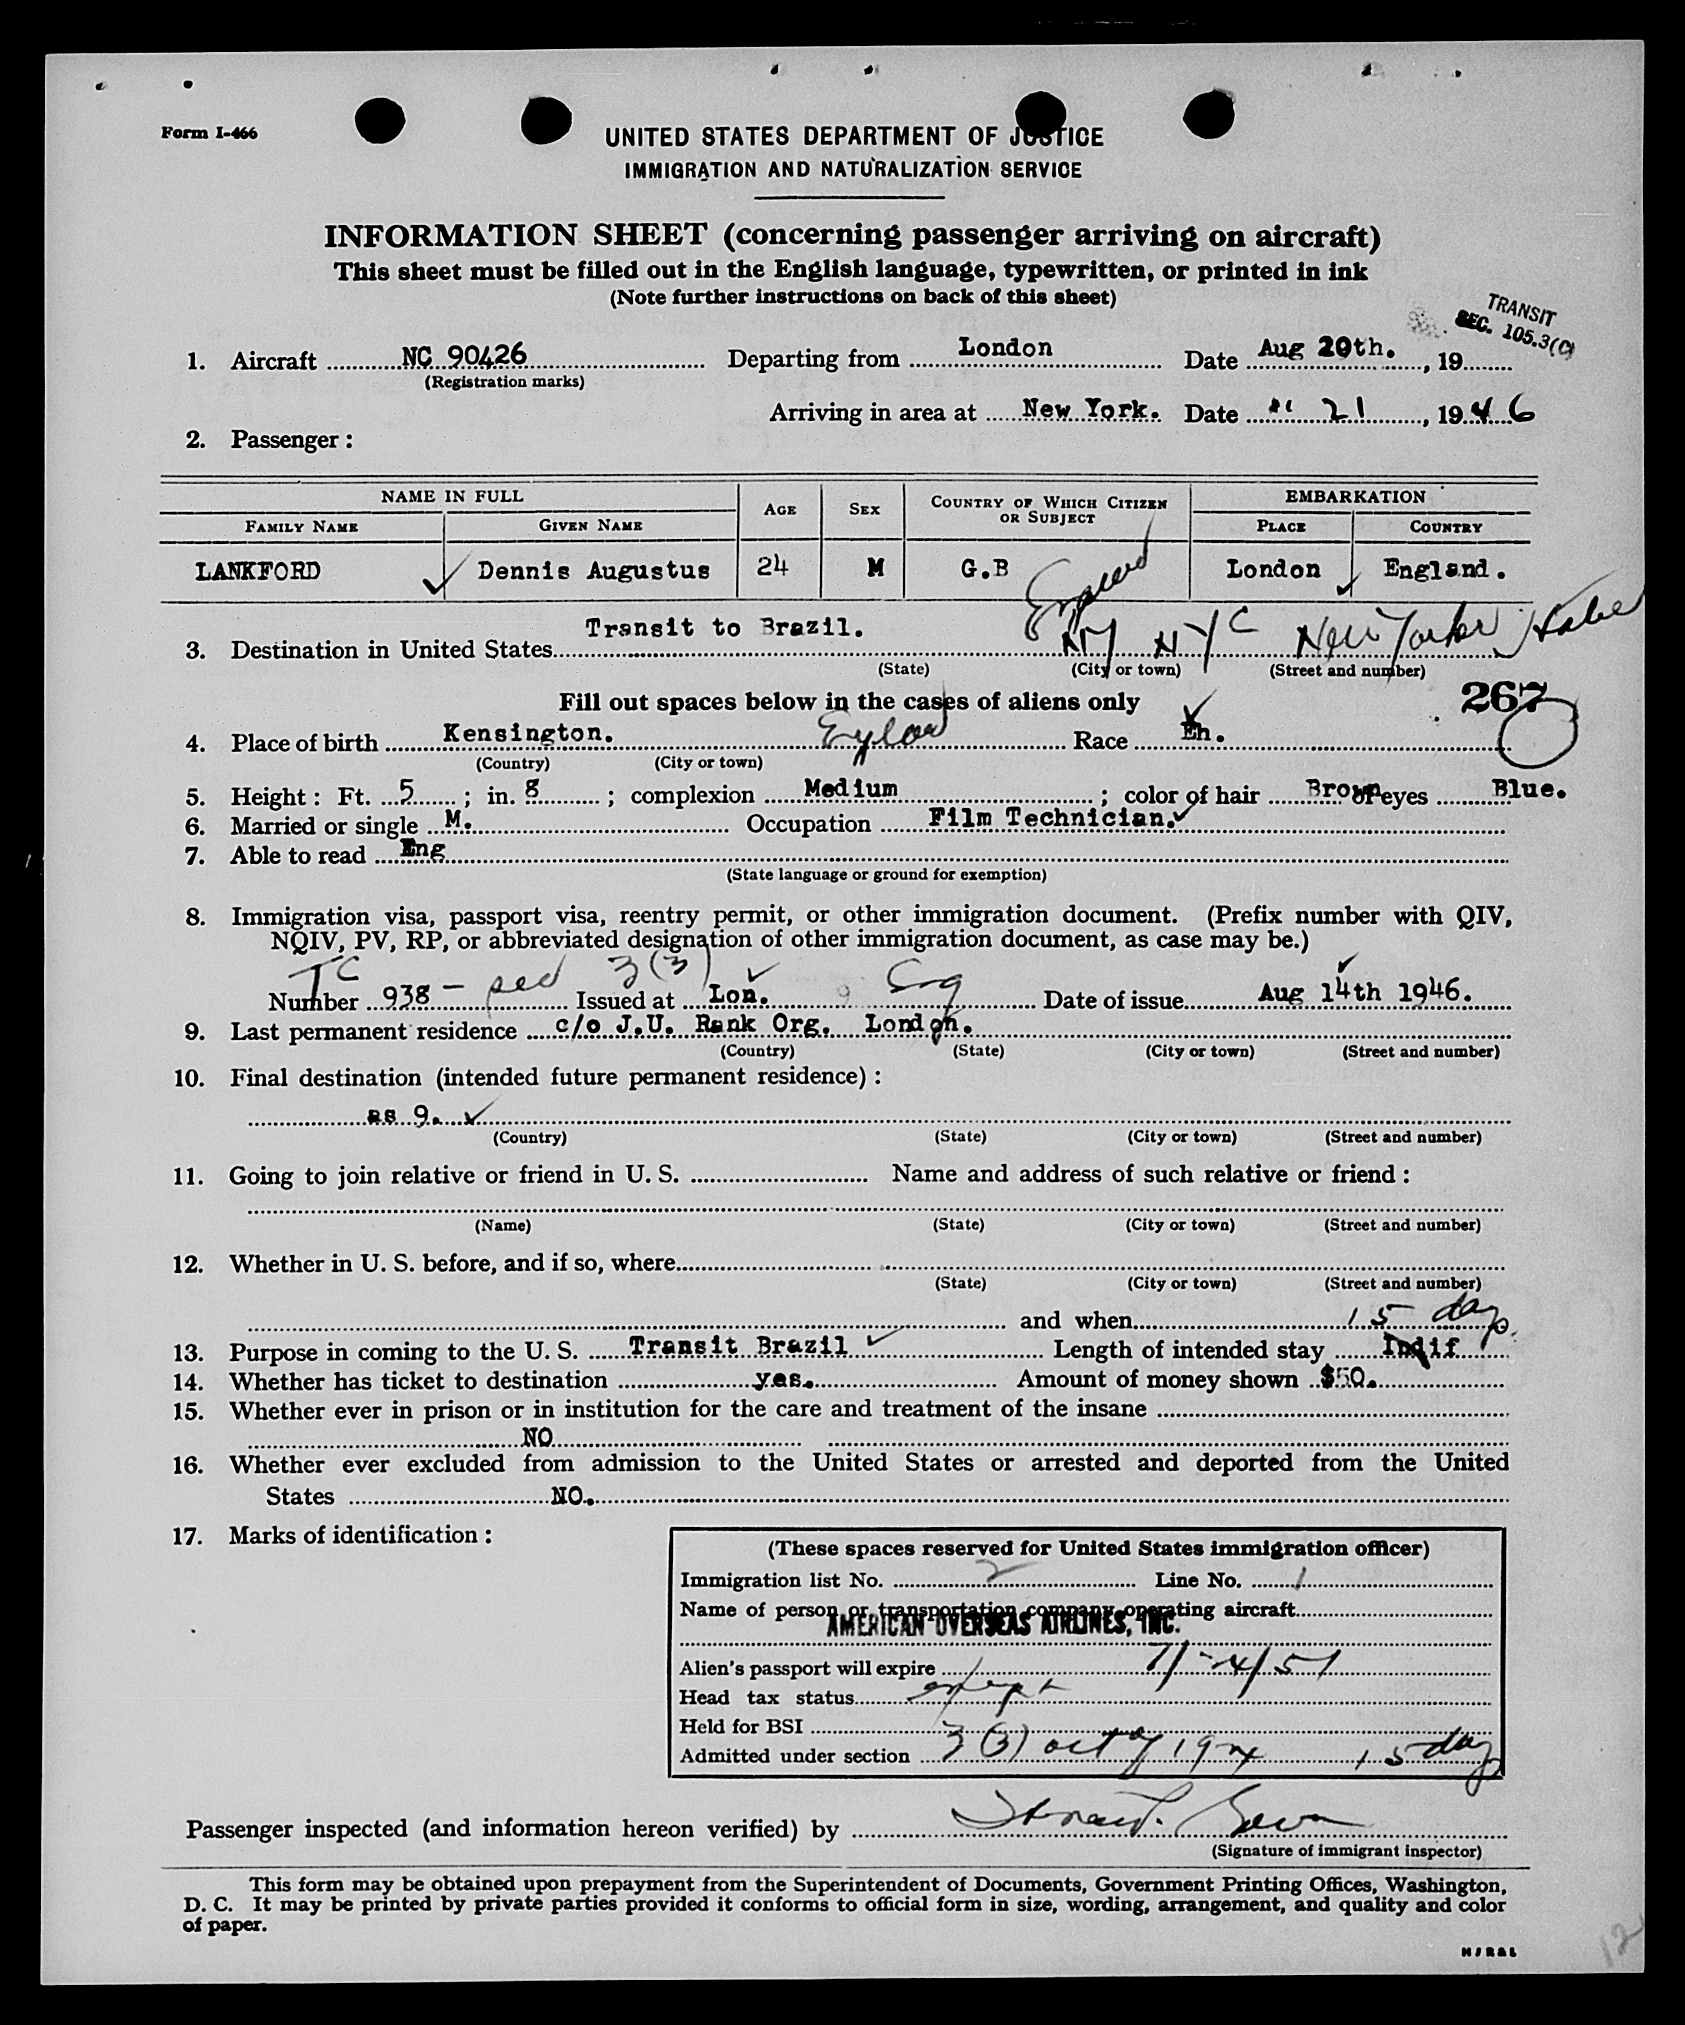 Form I-466
UNITED STATES DEPARTMENT OF JUSTICE
IMMIGRATION AND NATURALIZATION SERVICE
INFORMATION SHEET (concerning passenger arriving on aircraft)
This sheet must be filled out in the English language, typewritten, or printed in ink
(Note further instructions on back of this sheet)
TRANSIT
SEC. 105.3(C)
1. Aircraft NC 90426 Departing from London Date Aug 20th. , 19
(Registration marks)
Arriving in area at New York. Date " 21 , 1946
2. Passenger :
NAME IN FULL AGE SEX COUNTRY OF WHICH CITIZEN OR SUBJECT EMBARKATION
FAMILY NAME GIVEN NAME PLACE COUNTRY
LANKFORD Dennis Augustus 24 M G.B England London England.
Transit to Brazil.
3. Destination in United States NY NYC New Yorker Hotel
(State) (City or town) (Street and number)
Fill out spaces below in the cases of aliens only
267
4. Place of birth Kensington. England Race Eh.
(Country) (City or town)
5. Height : Ft. 5 ; in. 8 ; complexion Medium ; color of hair Brown eyes Blue.
6. Married or single M. Occupation Film Technician.
7. Able to read Eng
(State language or ground for exemption)
8. Immigration visa, passport visa, reentry permit, or other immigration document. (Prefix number with QIV,
NQIV, PV, RP, or abbreviated designation of other immigration document, as case may be.)
TC 3(3)
Number 938 - Issued at Lon. Eng Date of issue Aug 14th 1946.
9. Last permanent residence c/o J.U. Rank Org. London.
(Country) (State) (City or town) (Street and number)
10. Final destination (intended future permanent residence) :
as 9.
(Country) (State) (City or town) (Street and number)
11. Going to join relative or friend in U. S. Name and address of such relative or friend :
(Name) (State) (City or town) (Street and number)
12. Whether in U. S. before, and if so, where
(State) (City or town) (Street and number)
and when 15 days
13. Purpose in coming to the U. S. Transit Brazil Length of intended stay Indif
14. Whether has ticket to destination yes. Amount of money shown $50.
15. Whether ever in prison or in institution for the care and treatment of the insane
NO
16. Whether ever excluded from admission to the United States or arrested and deported from the United
States NO.
17. Marks of identification :
(These spaces reserved for United States immigration officer)
Immigration list No. 2 Line No. 1
Name of person or transportation company operating aircraft
AMERICAN OVERSEAS AIRLINES, INC.
Alien's passport will expire 7/-4/51
Head tax status exempt
Held for BSI
Admitted under section 3(3) act of 1924 15 days
Passenger inspected (and information hereon verified) by
(Signature of immigrant inspector)
This form may be obtained upon prepayment from the Superintendent of Documents, Government Printing Offices, Washington,
D. C. It may be printed by private parties provided it conforms to official form in size, wording, arrangement, and quality and color
of paper.
12